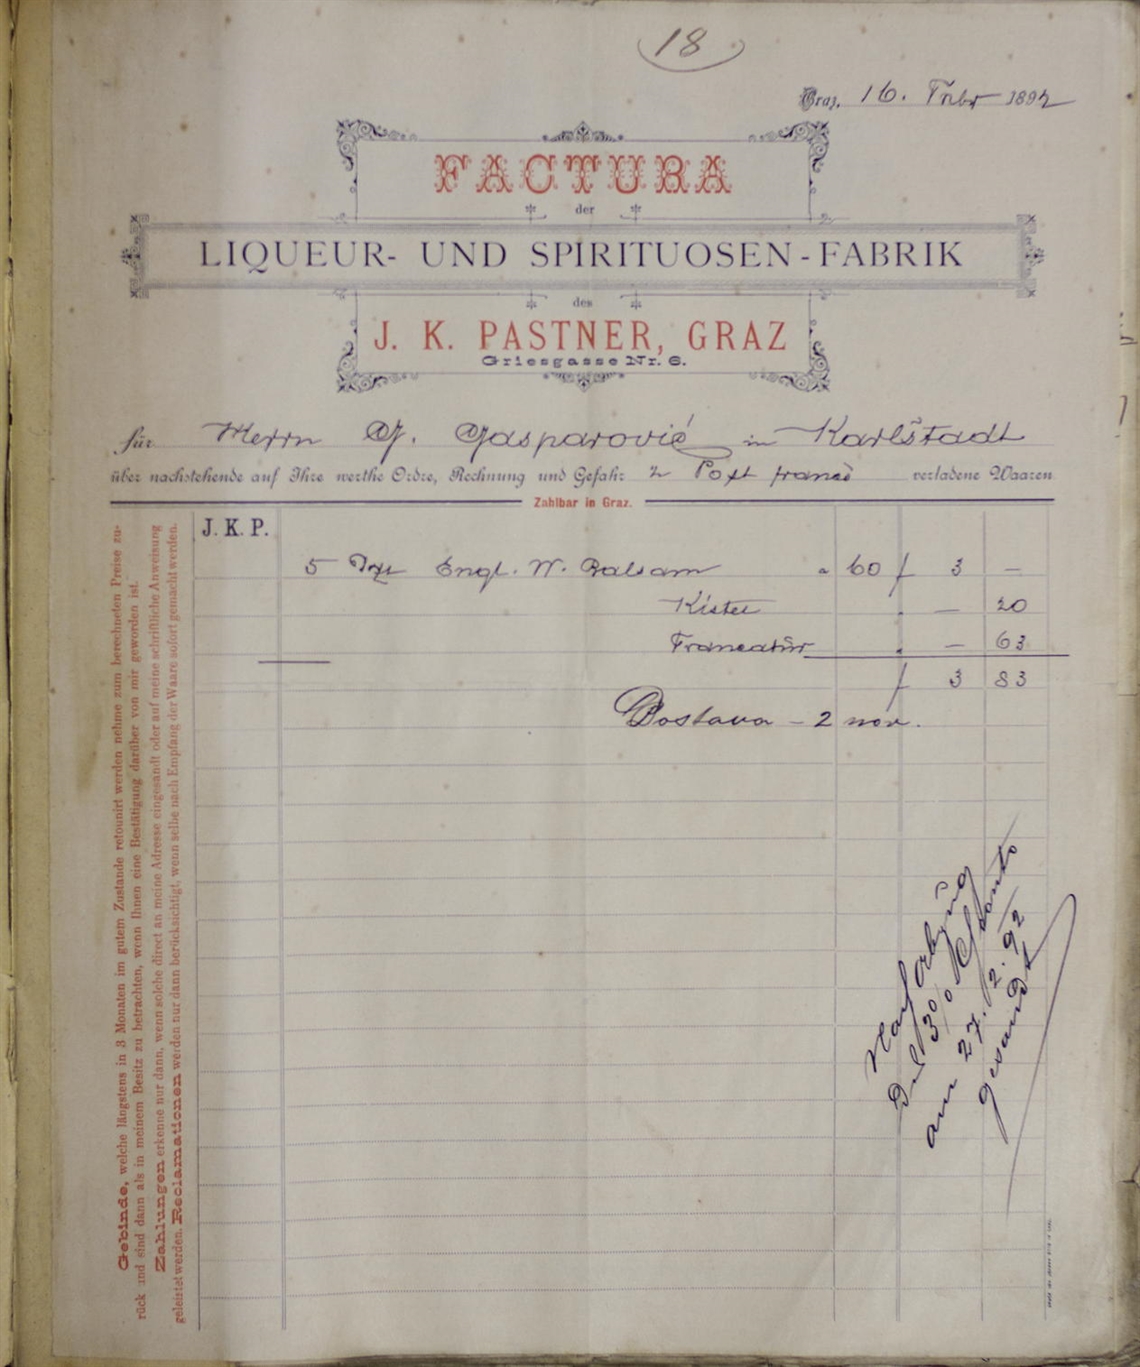 18
Graz, 16. 1892
FACTURA
der
LIQUEUR- UND SPIRITUOSEN-FABRIK
des
J. K. PASTNER, GRAZ
Griesgasse Nr. 6.
für Herrn G. Gasparović in Karlstadt
über nachstehende auf Ihre werthe Ordre, Rechnung und Gefahr Post franco verladene Waaren
Zahlbar in Graz.
J. K. P.
5 Engl. W. Balsam a 60 f 3 —
Kistel — 20
Francatur — 63
f 3 83
Dostava - 2 nov.
am 27./2. 92
gesandt
Gebinde, welche längstens in 3 Monaten im gutem Zustande retounirt werden nehme zum berechneten Preise zu-
rück und sind dann als in meinem Besitz zu betrachten, wenn Ihnen eine Bestätigung darüber von mir geworden ist.
Zahlungen erkenne nur dann, wenn solche direct an meine Adresse eingesandt oder auf meine schriftliche Anweisung
geleistet werden. Reclamationen werden nur dann berücksichtigt, wenn selbe nach Empfang der Waare sofort gemacht werden.